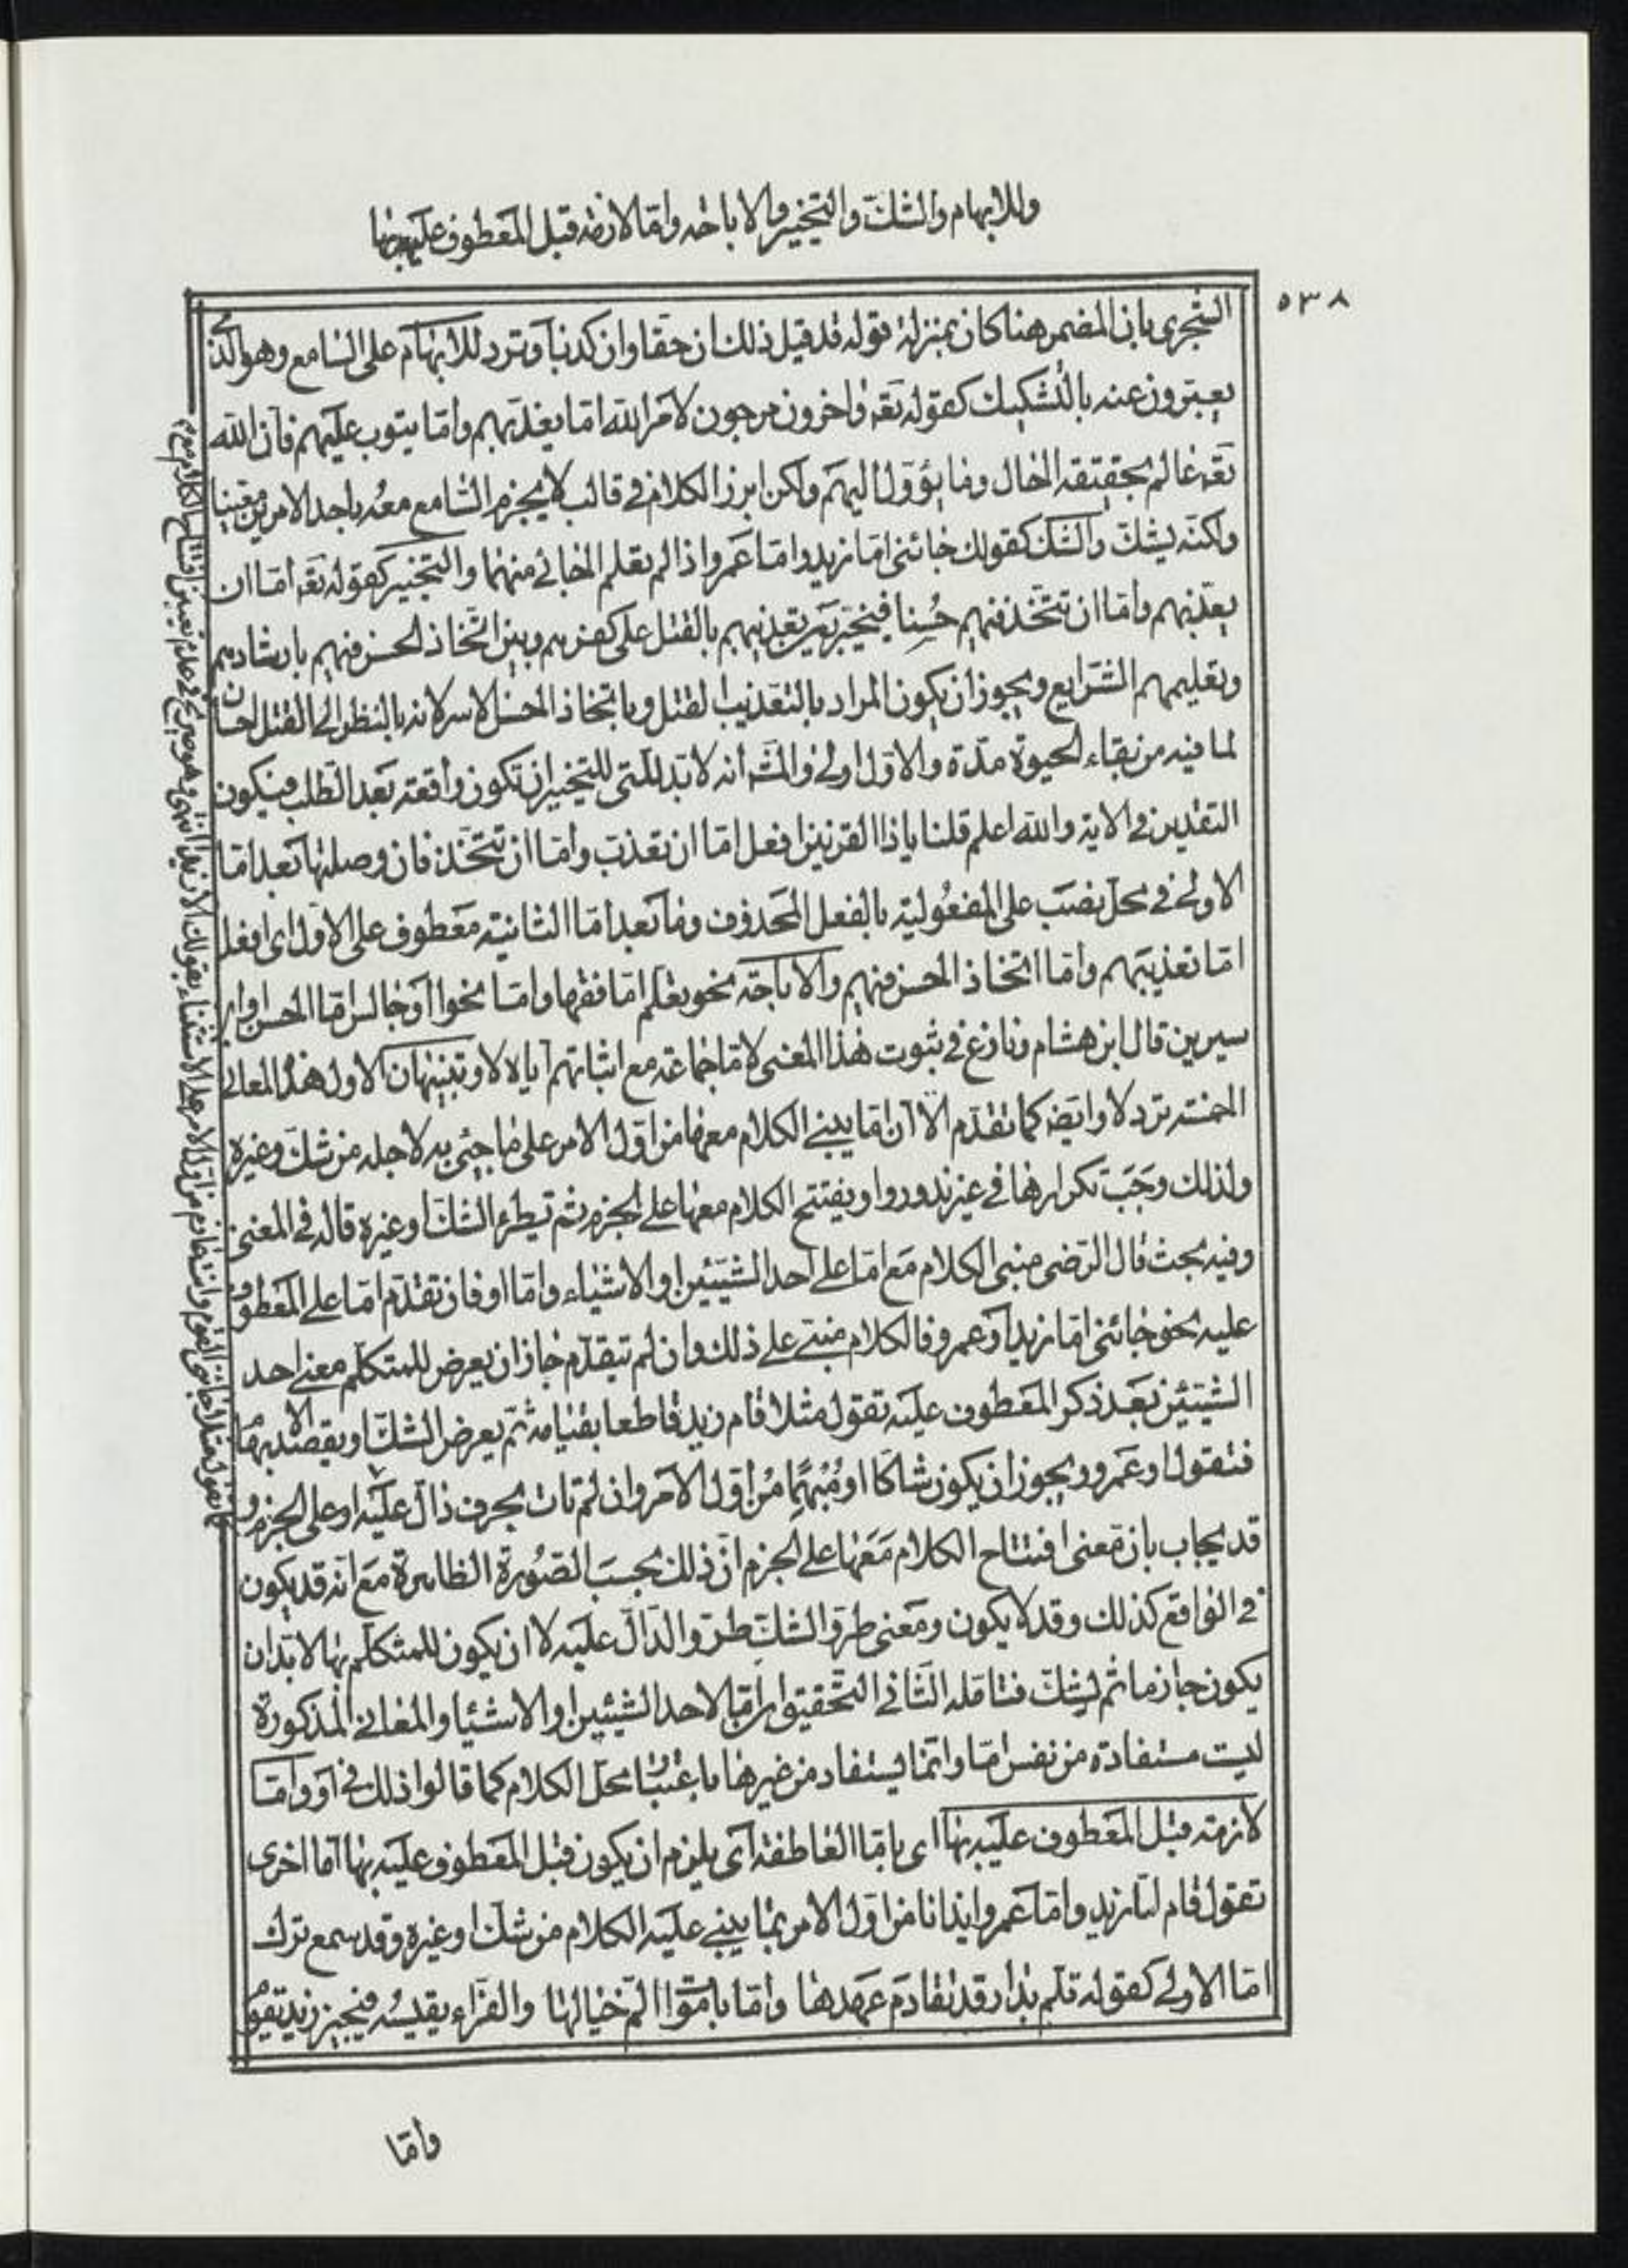 وللابهام والشك والتخيير والاباحة واما لازمة قبل المعطوف عليه بها
٥٣٨
الشجرى بان المضمر هنا كان بمنزلة قوله قد قيل ذلك ان حقا وان كذبا وترد للابهام على السامع وهو الذى
يعبرون عنه بالتشكيك كقوله تعه واخرون مرجون لامر الله اما يعذبهم واما يتوب عليهم فان الله
تعه عالم بحقيقة الحال وما يؤول اليهم ولكن ابرز الكلام فى قالب لا يجزم السامع معه باحد الامرين معينا
ولكنه يشك والشك كقولك جائنى اما زيد واما عمرو اذا لم تعلم الجائى منهما والتخيير كقوله تعه اما ان
تعذبهم واما ان تتخذ فيهم حُسنا فيخير بين تعذيبهم بالقتل على كفرهم وبين اتخاذ الحسن فيهم بارشادهم
وتعليمهم الشرايع ويجوز ان يكون المراد بالتعذيب القتل وباتخاذ الحسن الاسر لانه بالنظر الى القتل احسان
لما فيه من بقاء الحيوة مدة والاول اولى والمشه انه لا بد للتى للتخيير ان تكون واقعة بعد الطلب فيكون
التقدير فى الاية والله اعلم قلنا ياذا القرنين افعل اما ان تعذب واما ان تتخذ فان وصلتها بعد اما
الاولى فى محل نصب على المفعُولية بالفعل المحذوف وما بعد اما الثانية معطوف على الاول اى افعل
اما تعذيبهم واما اتخاذ الحسن فيهم والاباحة نحو تعلم اما فقها واما نحوا او جالس اما الحسن واما ابن
سيرين قال ابن هشام ونازع فى ثبوت هذا المعنى لاما جماعة مع اثباتهم اياه لاو تنبيهان الاول هذه المعانى
الخمسة ترد لاو ايضه كما تقدم الا ان اما يبنى الكلام معها من اول الامر على ما جيئ به لاجله من شك وغيره
ولذلك وجَبَت تكرارها فى غير ندور واو يفتتح الكلام معها على الجزم ثم تيطرئ الشك او غيره قاله فى المغنى
وفيه بحث قال الرضى مبنى الكلام مع اما على احد الشيئين او الاشياء واما او فان تقدم اما على المعطوف
عليه نحو جائنى اما زيد او عمرو فالكلام مبنى على ذلك وان لم تتقدم جاز ان يعرض للمتكلم معنى احد
الشيئين بعد ذكر المعطوف عليه تقول مثلا قام زيد قاطعا بقيامه ثم يعرض الشك او يقصد الابهام
فتقول او عمرو ويجوز ان يكون شاكا او مُبْهِمًا من اول الامر وان لم تات بحرف دال عليه او على الجزم و
قد يجاب بان معنى افتتاح الكلام معها على الجزم ان ذلك بحسب الصُورة الظاهرة مع انه قد يكون
فى الواقع كذلك وقد لا يكون ومعنى طروّ الشك طروّ الدال عليه لا ان يكون للمتكلم بها لا بد ان
يكون جازما ثم ليشك فتامله الثانى التحقيق ان اما لاحد الشيئين او الاشئيا والمعانى المذكورة
ليت مستفادة من نفس اما وانما يستفاد من غيرها باعتبار محل الكلام كما قالوا ذلك فى او واما
لازمة قبل المعطوف عليه بها اى باما العاطفة اى يلزم ان يكون قبل المعطوف عليه بها اما اخرى
تقول قام اما زيد واما عمرو ايذانا من اول الامر بما يبنى عليه الكلام من شك او غيره وقد سمع ترك
اما الاولى كقوله تلم بدار قد تقادم عهدها واما باموات الم خيالها والفراء يقيسُه فيجيز زيد يقوم
واما